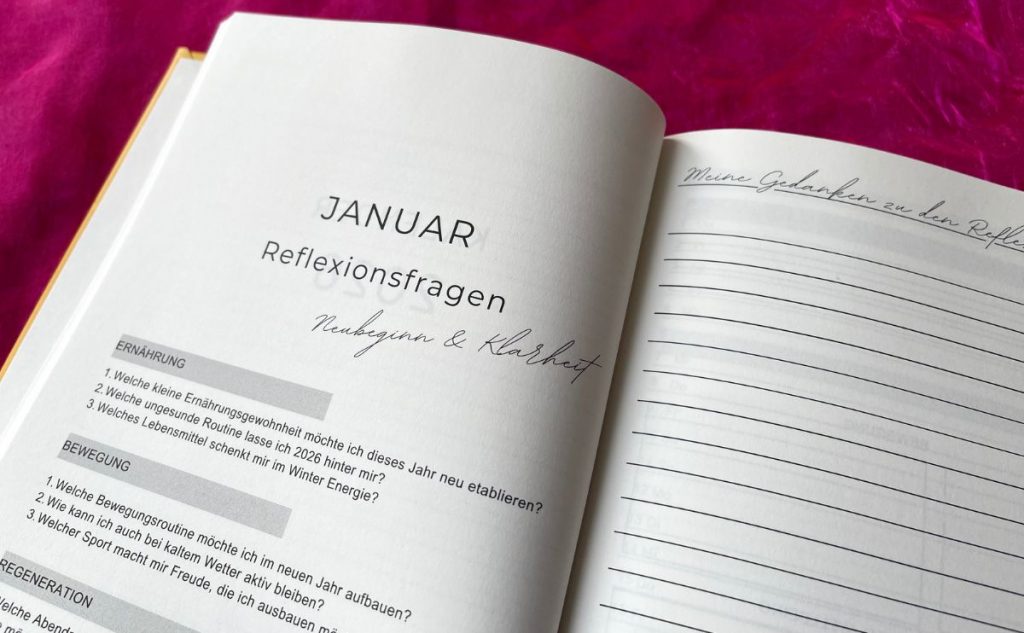 JANUAR
Reflexionsfragen
Neubeginn & Klarheit
ERNÄHRUNG
1. Welche kleine Ernährungsgewohnheit möchte ich dieses Jahr neu etablieren?
2. Welche ungesunde Routine lasse ich 2026 hinter mir?
3. Welches Lebensmittel schenkt mir im Winter Energie?
BEWEGUNG
1. Welche Bewegungsroutine möchte ich im neuen Jahr aufbauen?
2. Wie kann ich auch bei kaltem Wetter aktiv bleiben?
3. Welcher Sport macht mir Freude, die ich ausbauen
REGENERATION
Welche
Meine Gedanken zu den